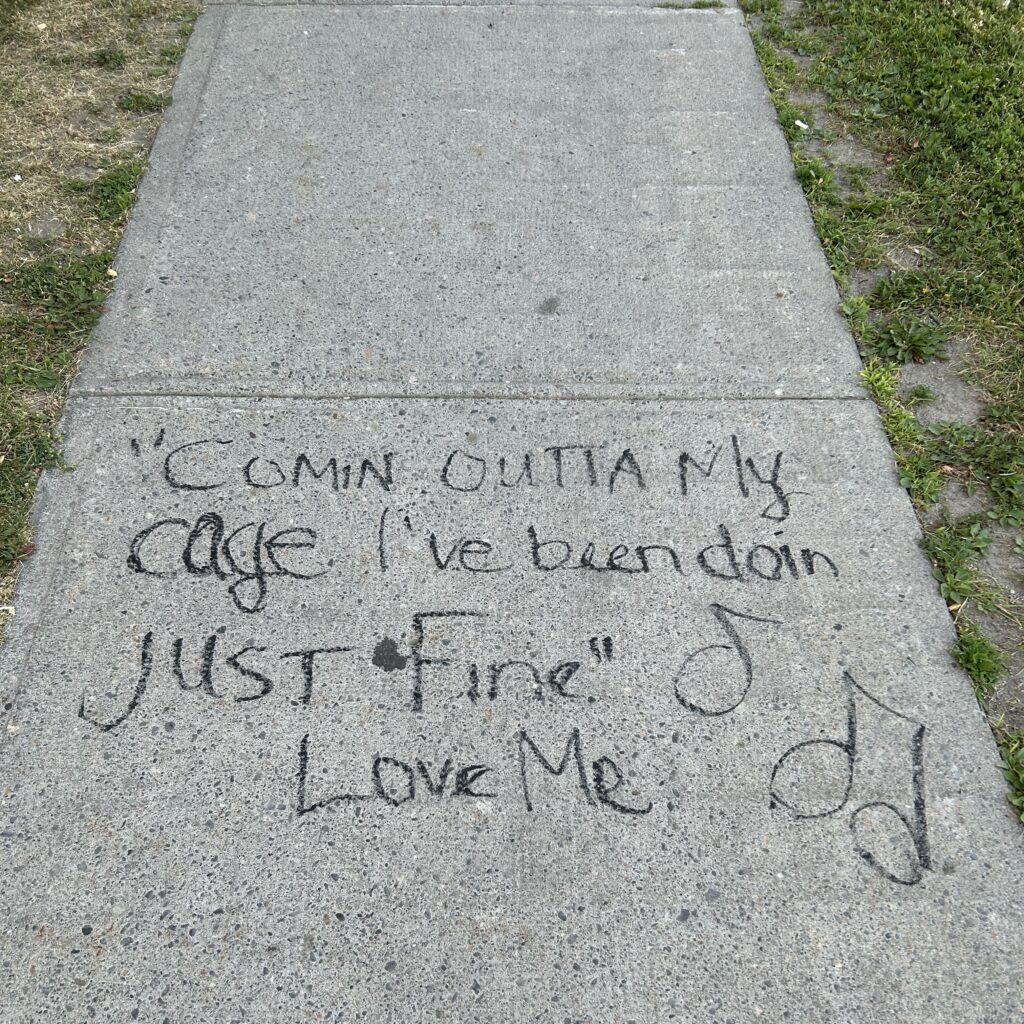 "COMIN OUTTA My
cage I've been doin
JUST Fine"
Love Me